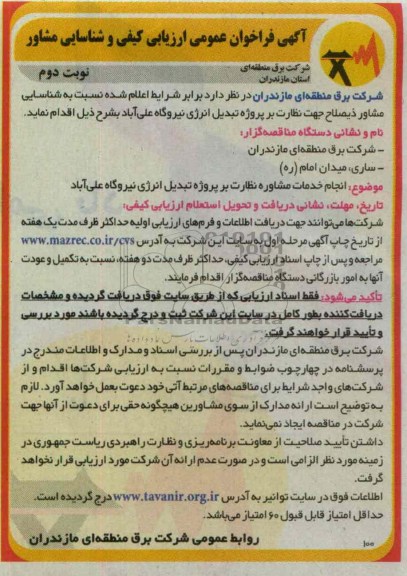 آگهی فراخوان عمومی ارزیابی کیفی و شناسایی مشاور
شرکت برق منطقه‌ای
استان مازندران
نوبت دوم
شرکت برق منطقه‌ای مازندران در نظر دارد برابر شرایط اعلام شده نسبت به شناسایی
مشاور ذیصلاح جهت نظارت بر پروژه تبدیل انرژی نیروگاه علی‌آباد بشرح ذیل اقدام نماید.
نام و نشانی دستگاه مناقصه‌گزار:
– شرکت برق منطقه‌ای مازندران
– ساری، میدان امام (ره)
موضوع: انجام خدمات مشاوره نظارت بر پروژه تبدیل انرژی نیروگاه علی‌آباد
تاریخ، مهلت، نشانی دریافت و تحویل استعلام ارزیابی کیفی:
شرکت‌ها می‌توانند جهت دریافت اطلاعات و فرم‌های ارزیابی اولیه حداکثر ظرف مدت یک هفته
از تاریخ چاپ آگهی مرحله اول به سایت این شرکت به آدرس www.mazrec.co.ir/cvs
مراجعه و پس از چاپ اسناد ارزیابی کیفی، حداکثر ظرف مدت دو هفته، نسبت به تکمیل و عودت
آنها به امور بازرگانی دستگاه مناقصه‌گزار اقدام فرمایند.
تأکید می‌شود: فقط اسناد ارزیابی که از طریق سایت فوق دریافت گردیده و مشخصات
دریافت‌کننده بطور کامل در سایت این شرکت ثبت و درج گردیده باشند مورد بررسی
و تأیید قرار خواهند گرفت.
شرکت برق منطقه‌ای مازندران پس از بررسی اسناد و مدارک و اطلاعات مندرج در
پرسشنامه در چهارچوب ضوابط و مقررات نسبت به ارزیابی شرکت‌ها اقدام و از
شرکت‌های واجد شرایط برای مناقصه‌های مرتبط آتی خود دعوت بعمل خواهد آورد. لازم
به توضیح است ارائه مدارک از سوی مشاورین هیچگونه حقی برای دعوت از آنها جهت
شرکت در مناقصه ایجاد نمی‌نماید.
داشتن تأیید صلاحیت از معاونت برنامه‌ریزی و نظارت راهبردی ریاست جمهوری در
زمینه مورد نظر الزامی است و در صورت عدم ارائه آن شرکت مورد ارزیابی قرار نخواهد
گرفت.
اطلاعات فوق در سایت توانیر به آدرس www.tavanir.org.ir درج گردیده است.
حداقل امتیاز قابل قبول ۶۰ امتیاز می‌باشد.
روابط عمومی شرکت برق منطقه‌ای مازندران